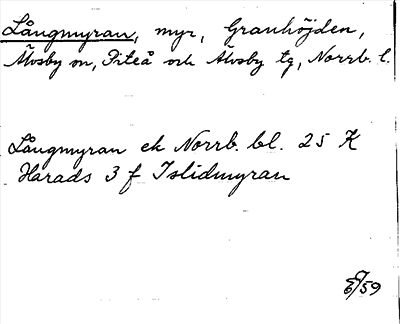 Långmyran, myr, Granhöjden,
Älvsby sn, Piteå och Älvsby tg, Norrb. l.
Långmyran ek Norrb. bl. 25 K
Harads 3 f Islidmyran
/59